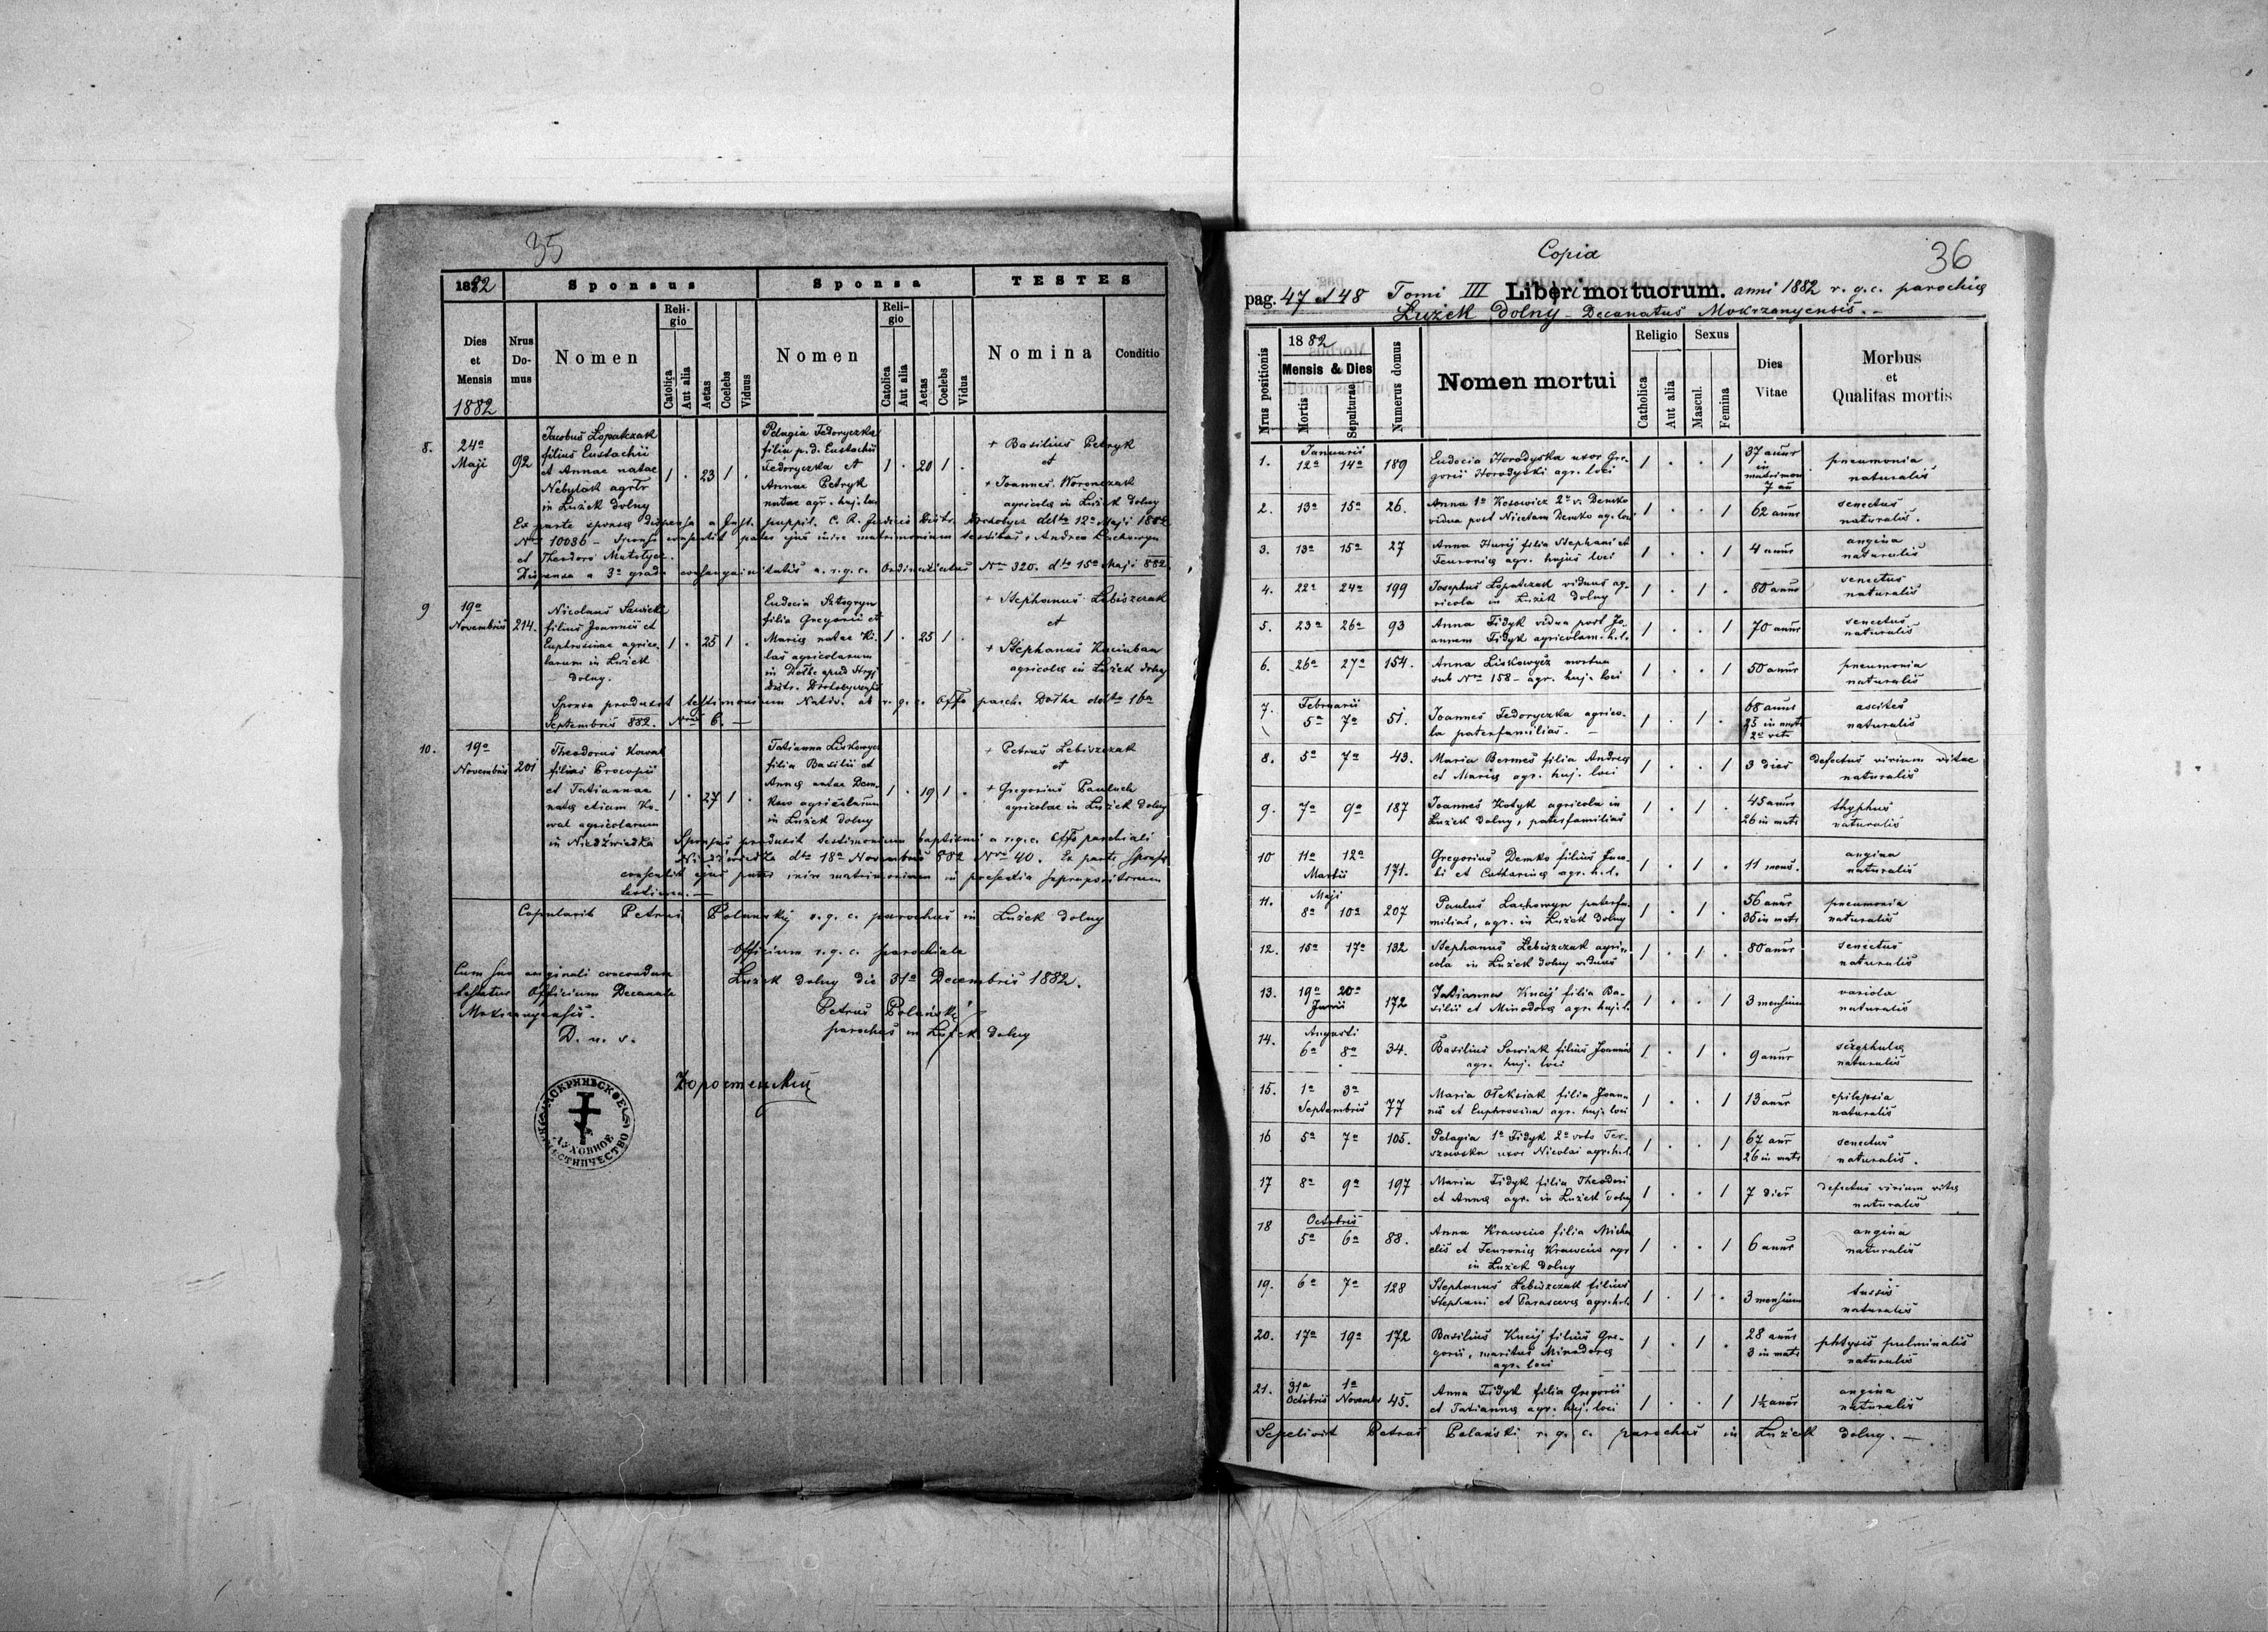 35
1882
Sponsus
Sponsa
TESTES
Dies et Mensis 1882
Nrus Domus
Nomen
Religio
Catolica
Aut alia
Aetas
Coelebs
Viduus
Nomen
Religio
Catolica
Aut alia
Aetas
Coelebs
Vidua
Nomina
Conditio
8. 24a Maji 92
Jacobus Lopatczak
filius Eustachii
et Annae natae
Nebylak agrlr
in Łużek dolny
1 . 23 1 .
Pelagia Fedoryczka
filia p. d. Eustachii
Fedoryczka et
Annae Petryk
natae agr. huj. loci
1 . 20 1 .
+ Basilius Petryk
et
+ Joannes Woronczak
agricolae in Łużek dolny
Ex parte sponsae dispensa a Just. puppil. C. R. Judicii Distr. Drohobycz ddto 12a Maji 1882
Nro 10036 – Sponso consentit pater ejus inire matrimonium testibus: Andrea Lachowyn
et Theodoro Matolycz.
Dispensa a 3o gradu consanguinitatis a. r. g. c. Ordinariatus Nro 320. dto 15a Maji 882.
9 19a Novembris 214.
Nicolaus Sawicki
filius Joannis et
Euphrosinae agrico-
larum in Łużek
dolny.
1 . 25 1 .
Eudocia Sztogryn
filia Gregorii et
Mariae natae Ki-
las agricolarum
in Dołhe apud Stryj
distr. Drohobycensis
1 . 25 1 .
+ Stephanus Lebiszczak
et
+ Stephanus
agricolae in Łużek dolny
Sponsa produxit testimonium Nativ. ab r. g. c. Offo paroch. Dołhe ddto 16a
Septembris 882. Nro 6. —
10. 19a Novembris 201
Theodorus Kowal
filius Procopii
et Tatiannae
natae etiam Ko-
wal agricolarum
in Niedźwiedza
1 . 27 1 .
Tatianna Liskowycz
filia Basilii et
Annae natae Dem-
kow agricolarum
in Łużek dolny
1 . 19 1 .
+ Petrus Lebiszczak
et
+ Gregorius Pauluch
agricolae in Łużek dolny
Sponsus produxit testimonium baptismi a r. g. c. Offo parchiali
Niedźwiedza dto 18a Novembris 882 Nro 40. Ex parte sponsae
consentit ejus pater inire matrimonium in presentia suprapositorum
testium. —
Copularit Petrus Polanskij r. g. c. parochus in Łużek dolny
Officium r. g. c. parochiale
Łużek dolny die 31a Decembris 1882.
Petrus Polański
parochus in Łużek dolny
Cum suo originali concordare
testatur Officium Decanale
Mokrzanyensis.
D. u. s.
МОКРЯНЬСКОЕ
ДУХОВНОЕ
Copia
36
pag. 47 et 48 Tomi III Libri mortuorum. anni 1882 r. g. c. parochiae
Łużek dolny – Decanatus Mokrzanyensis. –
Nrus positionis
1882
Mensis & Dies
Mortis
Sepulturae
Numerus domus
Nomen mortui
Religio
Catholica
Aut alia
Sexus
Mascul.
Femina
Dies Vitae
Morbus et Qualitas mortis
1. Januarii 12a 14a 189 Eudocia Horodyska uxor Gre-
gorii Horodyski agr. loci 1 . . 1 37 annr in matrimon 7 an pneumonia naturalis
2. 13a 15a 26. Anna 1o Kosowicz 2o v. Demko
vidua post Nicetam Demko ag. loci 1 . . 1 62 annr senectus naturalis.
3. 13a 15a 27 Anna Huryj filia Stephani et
Feuroniae agr. hujus loci 1 . . 1 4 annr angina naturalis
4. 22a 24a 199 Josephus Lopatczak viduus ag-
ricola in Łużek dolny 1 . 1 . 80 annr senectus naturalis
5. 23a 26a 93 Anna Fidyk vidua post Jo-
annem Fidyk agricolam h. l. 1 . . 1 70 annr senectus naturalis
6. 26a 27a 154. Anna Liskowycz mortua
sub Nro 158 – agr. huj. loci 1 . . 1 50 annr pneumonia naturalis
7. Februarii 5a 7a 51. Joannes Fedoryczka agrico-
la paterfamilias. – 1 . 1 . 68 annr ascites naturalis
8. 5a 7a 43. Maria Bermes filia Andreae
et Mariae agr. huj. loci 1 . . 1 3 dier defectus virium vitae naturalis
9. 7a 9a 187 Joannes Kotyk agricola in
Łużek dolny, paterfamilias 1 . 1 . 45 annr 26 in matr thyphus naturalis
10 11a 12a Martii 171. Gregorius Demko filius Jaco-
bi et Catharinae agr. h. l. 1 . 1 . 11 mens. angina naturalis
11. Maji 8a 10a 207 Paulus Lachowyn paterfa-
milias, agr. in Łużek dolny 1 . 1 . 56 annr 35 in matr pneumonia naturalis
12. 15a 17a 132 Stephanus Lebiszczak agri-
cola in Łużek dolny viduus 1 . 1 . 80 annr senectus naturalis
13. 19a 20a Junii 172 Tatianna Kucij filia Ba-
silii et Minodorae agr. huj. l. 1 . . 1 3 mensium variola naturalis
14. Augusti 6a 8a 34. Basilius Sowiak filius Joannis
agr. huj. loci 1 . 1 . 9 annr scrophulae naturalis
15. 1a 3a Septembris 77 Maria Oleksiak filia Joan-
nis et Euphrosina agr. huj. loci 1 . . 1 13 annr epilepsia naturalis
16 5a 7a 105. Pelagia 1o Fidyk 2o voto Ter-
szowska uxor Nicolai agr. h. l. 1 . . 1 67 anr 26 in matr senectus naturalis.
17 8a 9a 197 Maria Fidyk filia Theodori
et Annae agr. in Łużek dolny 1 . . 1 7 dier defectus virium vitae naturalis
18 Octobris 5a 6a 88. Anna Krawciw filia Micha
elis et Feuroniae Krawciw agr
in Łużek dolny 1 . . 1 6 annr angina naturalis
19. 6a 7a 128 Stephanus Lebiszczak filius
Stephani et Parascevae agr. h. l. 1 . 1 . 3 mensium tussis naturalis
20. 17a 19a 172 Basilius Kucij filius Gre-
gorii, maritus Minodorae
agr. loci 1 . 1 . 28 annr 3 in matr phtysis pulminalis naturalis
21. 31a Octobris 1a Novembr 45. Anna Fidyk filia Gregorii
et Tatiannae agr. huj. loci 1 . . 1 1½ annr angina naturalis
Sepelivit Petrus Polański r. g. c. parochus in Łużek dolny. —